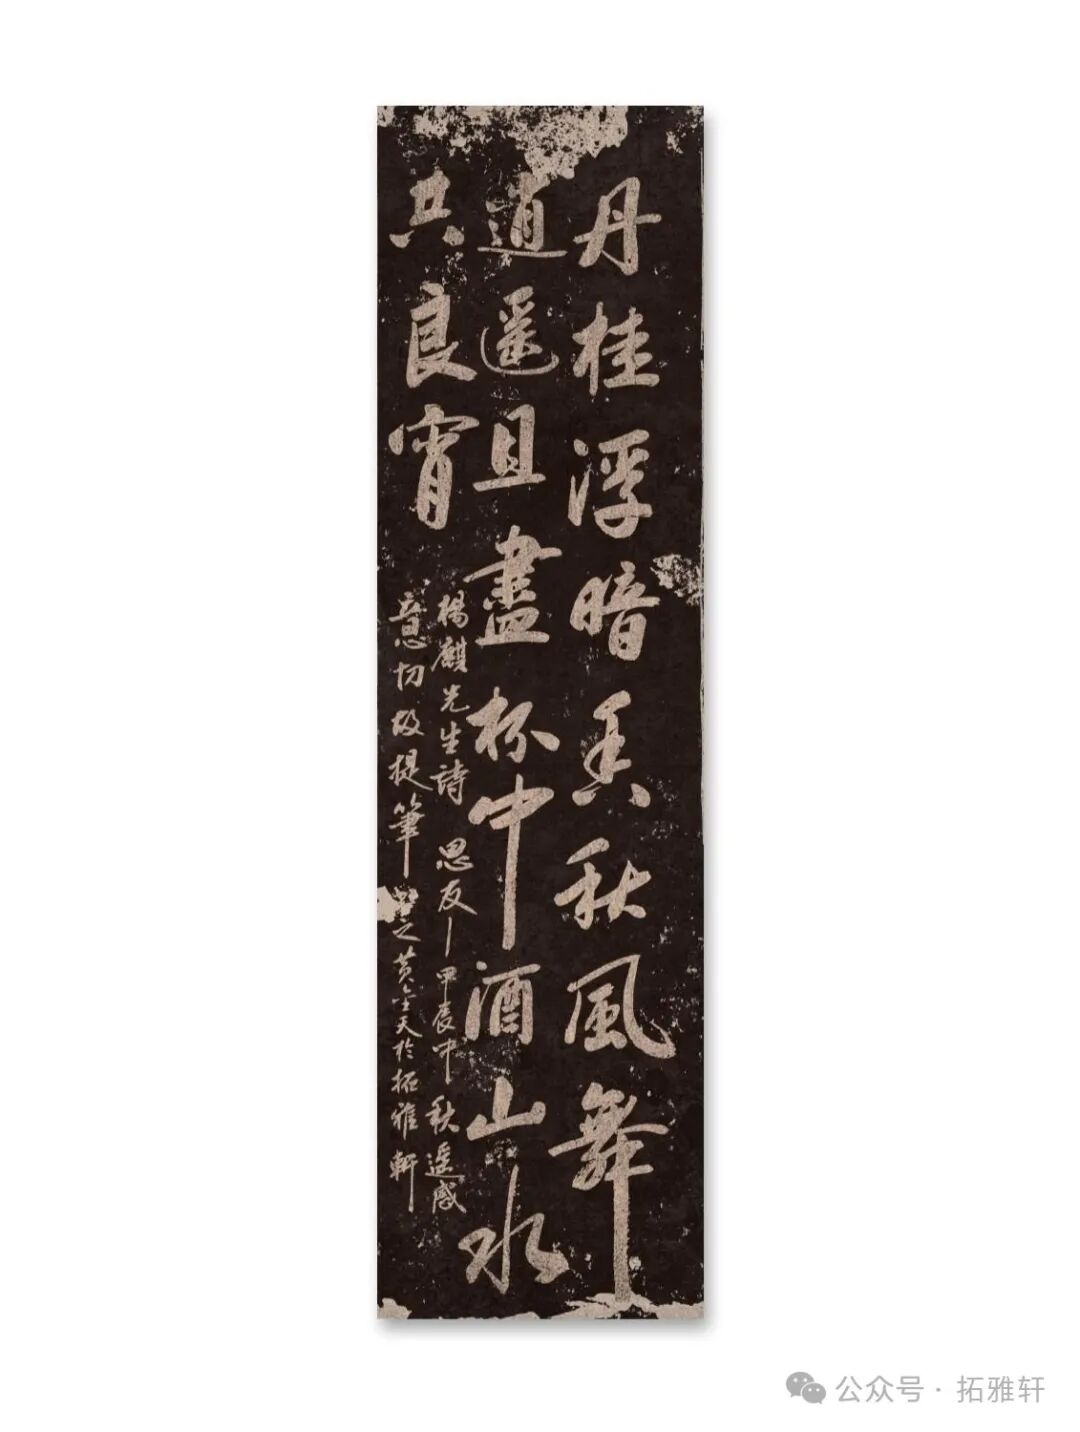 丹桂浮暗香秋風舞
逍遥且盡杯中酒山水
共良宵
楊麒先生詩 思友 甲辰中秋遥感
意切故提筆書之黄金天於拓雅軒
公众号·拓雅轩